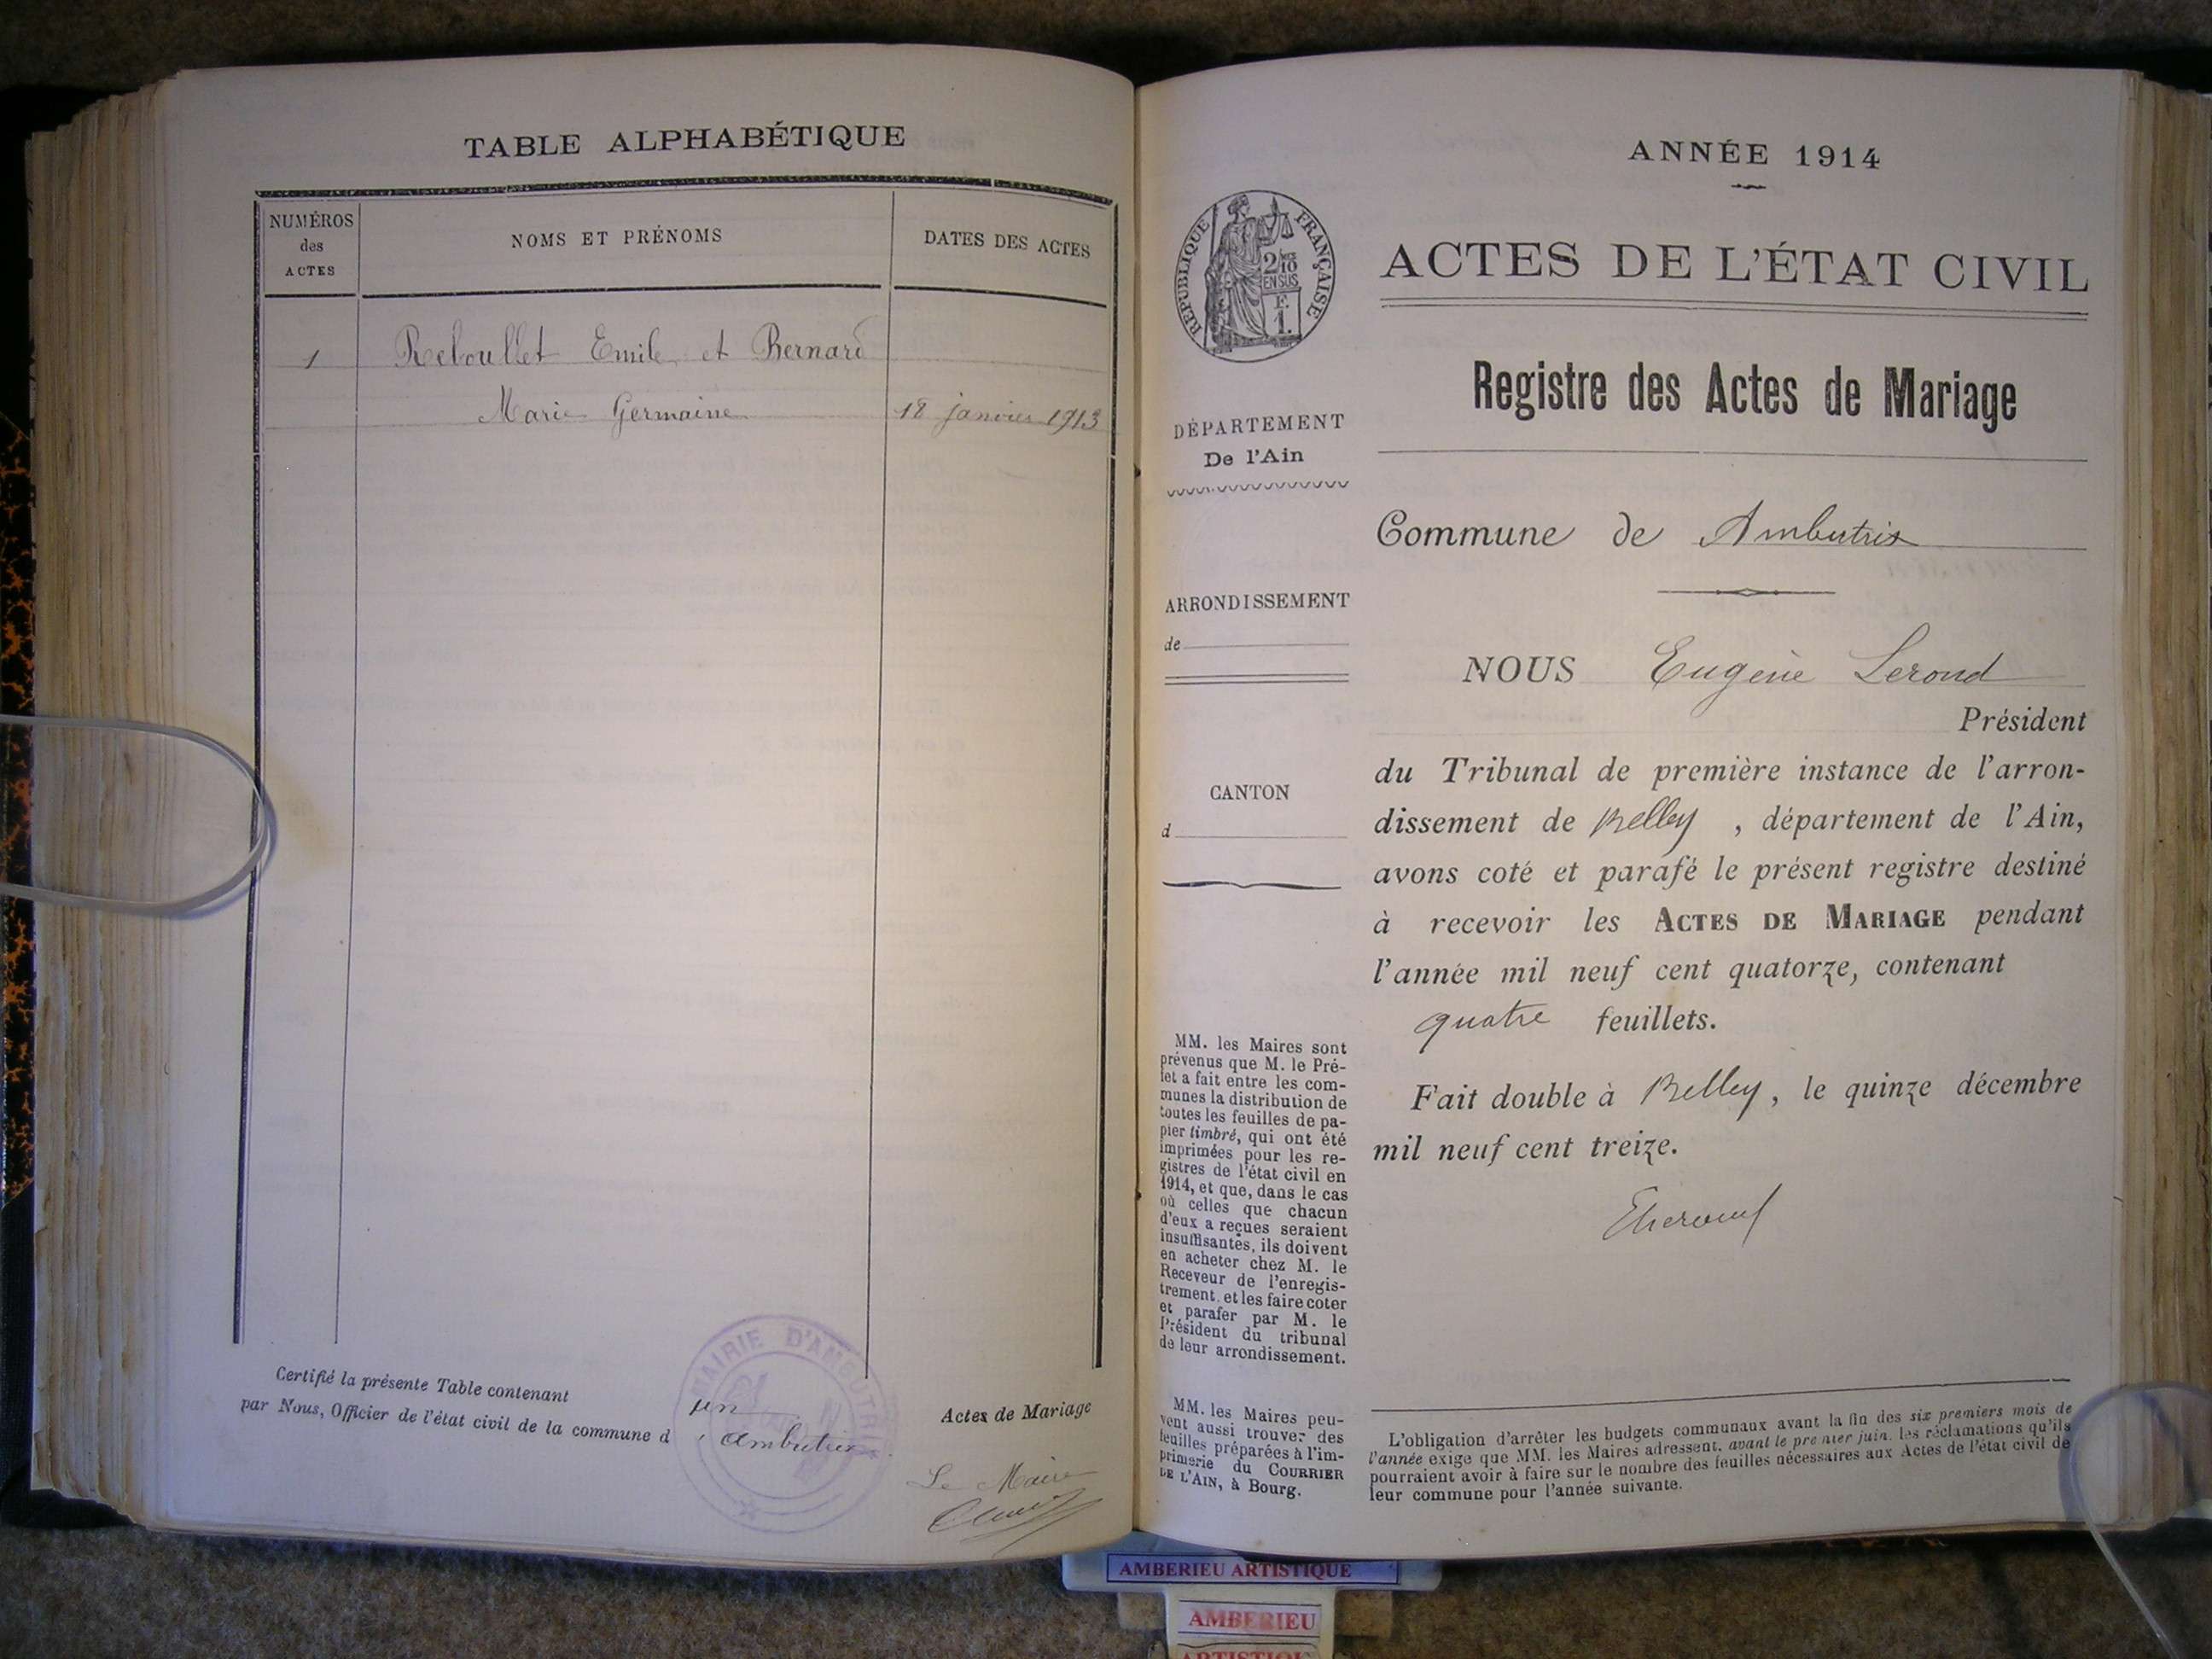 TABLE ALPHABÉTIQUE
NUMÉROS
des
ACTES
NOMS ET PRÉNOMS
DATES DES ACTES
1
Reboullet Emile et Bernard
Marie Germaine
18 janvier 1913
Certifié la présente Table contenant un Actes de Mariage
par Nous, Officier de l'état civil de la commune d'Ambutrix
MAIRIE D'AMBUTRIX
Le Maire
ANNÉE 1914
RÉPUBLIQUE FRANÇAISE
2/10
EN SUS
F.
1.
ACTES DE L'ÉTAT CIVIL
Registre des Actes de Mariage
DÉPARTEMENT
De l'Ain
ARRONDISSEMENT
de
CANTON
d
MM. les Maires sont
prévenus que M. le Pré-
fet a fait entre les com-
munes la distribution de
toutes les feuilles de pa-
pier timbré, qui ont été
imprimées pour les re-
gistres de l'état civil en
1914, et que, dans le cas
où celles que chacun
d'eux a reçues seraient
insuffisantes, ils doivent
en acheter chez M. le
Receveur de l'enregis-
trement, et les faire coter
et parafer par M. le
Président du tribunal
de leur arrondissement.
MM. les Maires peu-
vent aussi trouver des
feuilles préparées à l'im-
primerie du COURRIER
DE L'AIN, à Bourg.
Commune de Ambutrix
NOUS Eugène Lerond
Président
du Tribunal de première instance de l'arron-
dissement de Belley, département de l'Ain,
avons coté et parafé le présent registre destiné
à recevoir les ACTES DE MARIAGE pendant
l'année mil neuf cent quatorze, contenant
quatre feuillets.
Fait double à Belley, le quinze décembre
mil neuf cent treize.
L'obligation d'arrêter les budgets communaux avant la fin des six premiers mois de
l'année exige que MM. les Maires adressent, avant le premier juin, les réclamations qu'ils
pourraient avoir à faire sur le nombre des feuilles nécessaires aux Actes de l'état civil de
leur commune pour l'année suivante.
AMBERIEU ARTISTIQUE
AMBERIEU
ARTISTIQU